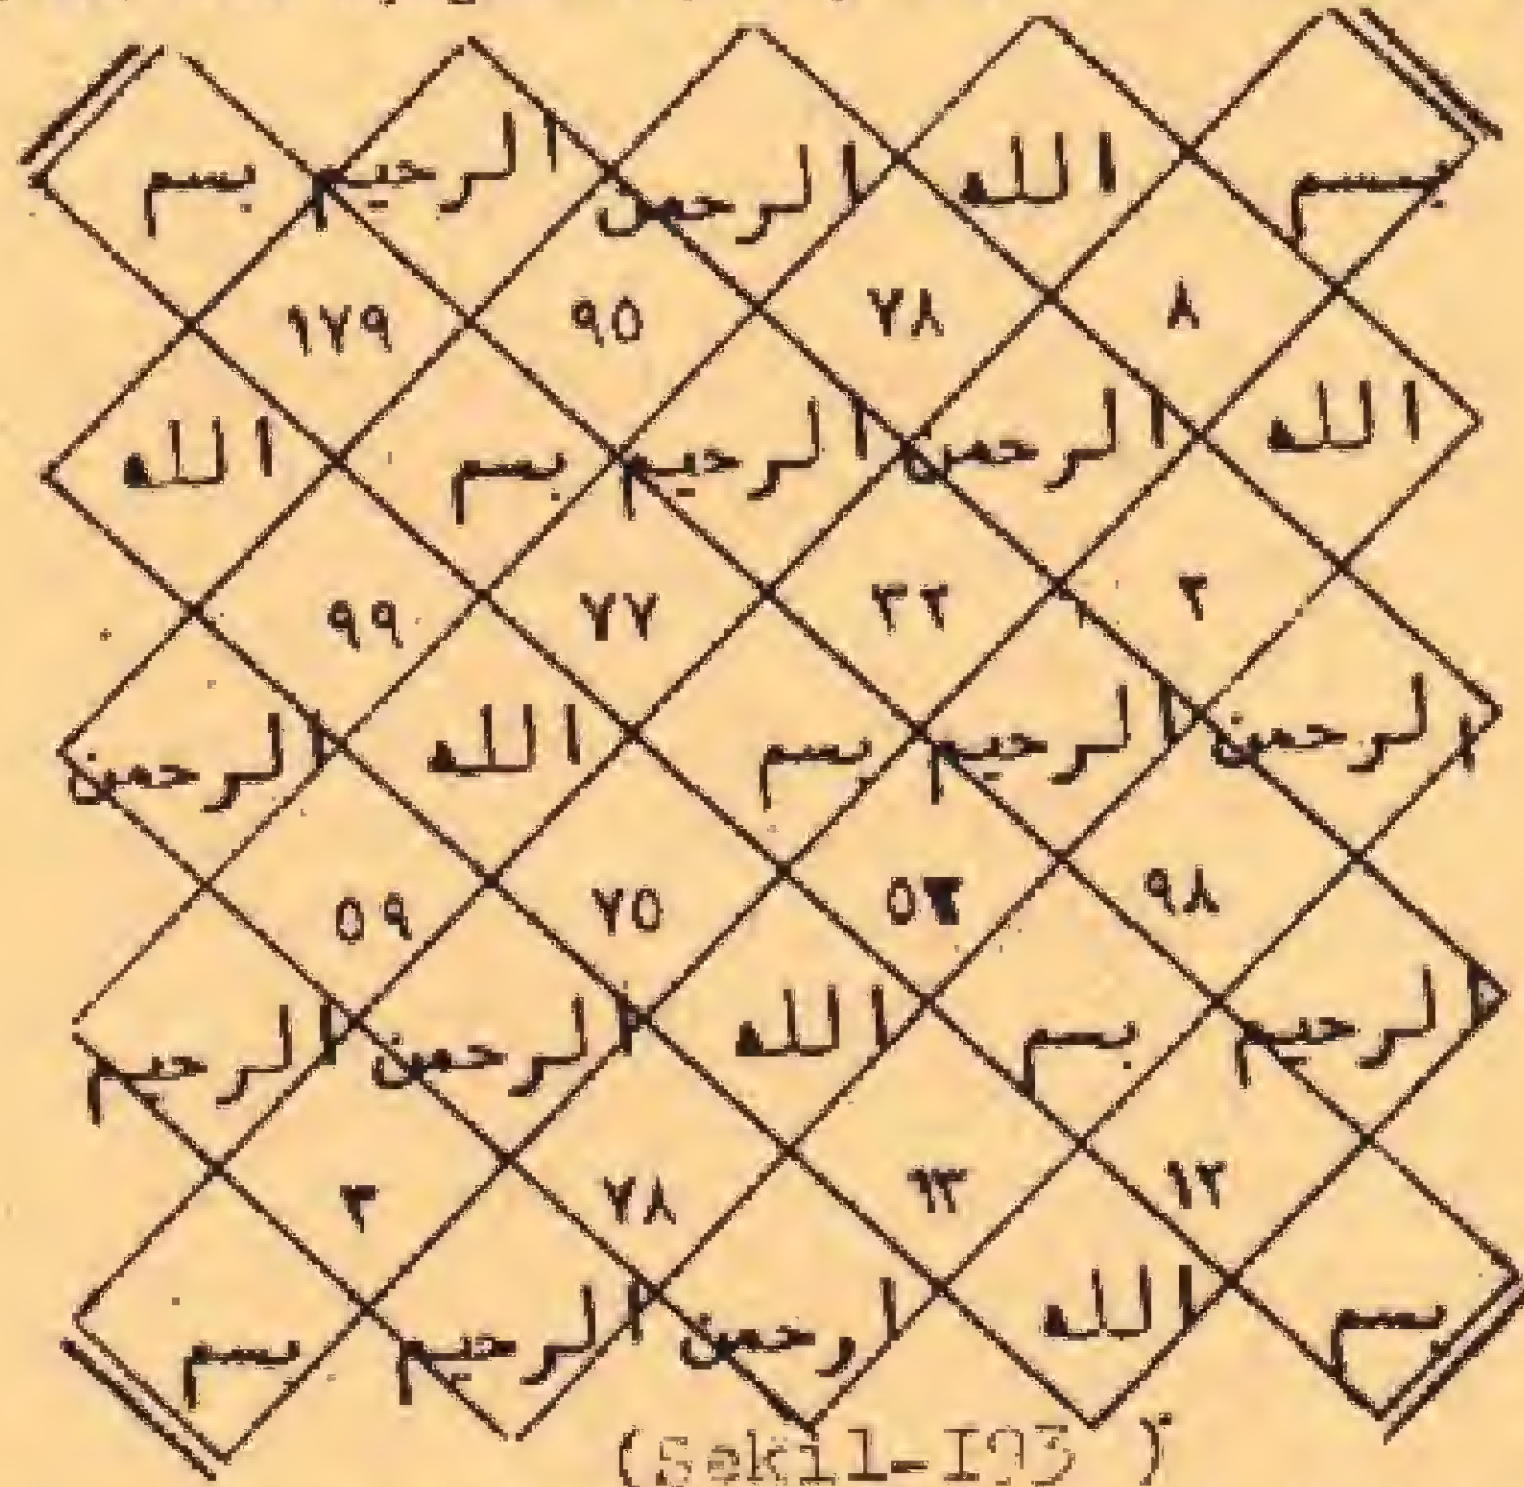 بسم الله الرحمن الرحيم بسم
٨ ٧٨ ٩٥ ١٧٩
الله الرحمن الرحيم بسم الله
٢ ٣٢ ٧٧ ٩٩
الرحمن الرحيم بسم الله الرحمن
٩٨ ٧٥ ٥٩
الرحيم بسم الله الرحمن الرحيم
١٢ ٩٣ ٧٨ ٣
بسم الله ارحمن الرحيم بسم
(Sekil-I93 )